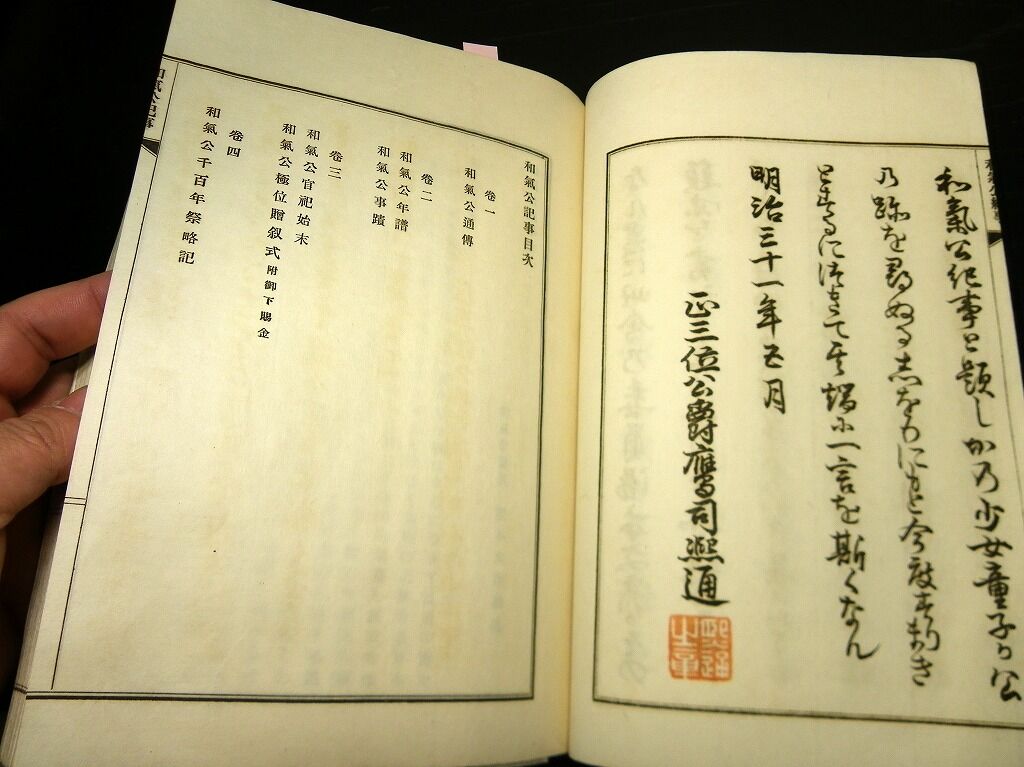 和氣公紀事と題しかの少女童子り公
乃跡を尋ぬる志をもにもと今度
とするにつきて其端小一言を斯くなん
明治三十一年五月
正三位公爵鷹司熙通
和氣公記事目次
卷一
和氣公通傳
卷二
和氣公年譜
和氣公事蹟
卷三
和氣公官祀始末
和氣公極位贈叙式附御下賜金
卷四
和氣公千百年祭略記
和氣公記事